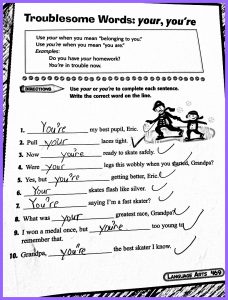 Troublesome Words: your, you're
Use your when you mean "belonging to you."
Use you're when you mean "you are."
Examples:
Do you have your homework?
You're in trouble now.
DIRECTIONS Use your or you're to complete each sentence.
Write the correct word on the line.
1. You're my best pupil, Eric.
2. Pull your laces tight.
3. Now you're ready to skate safely.
4. Were your legs this wobbly when you started, Grandpa?
5. Yes, but you're getting better, Eric.
6. Your skates flash like silver.
7. You're saying I'm a fast skater?
8. What was your greatest race, Grandpa?
9. I won a medal once, but you're too young to
remember that.
10. Grandpa, you're the best skater I know.
LANGUAGE ARTS 469